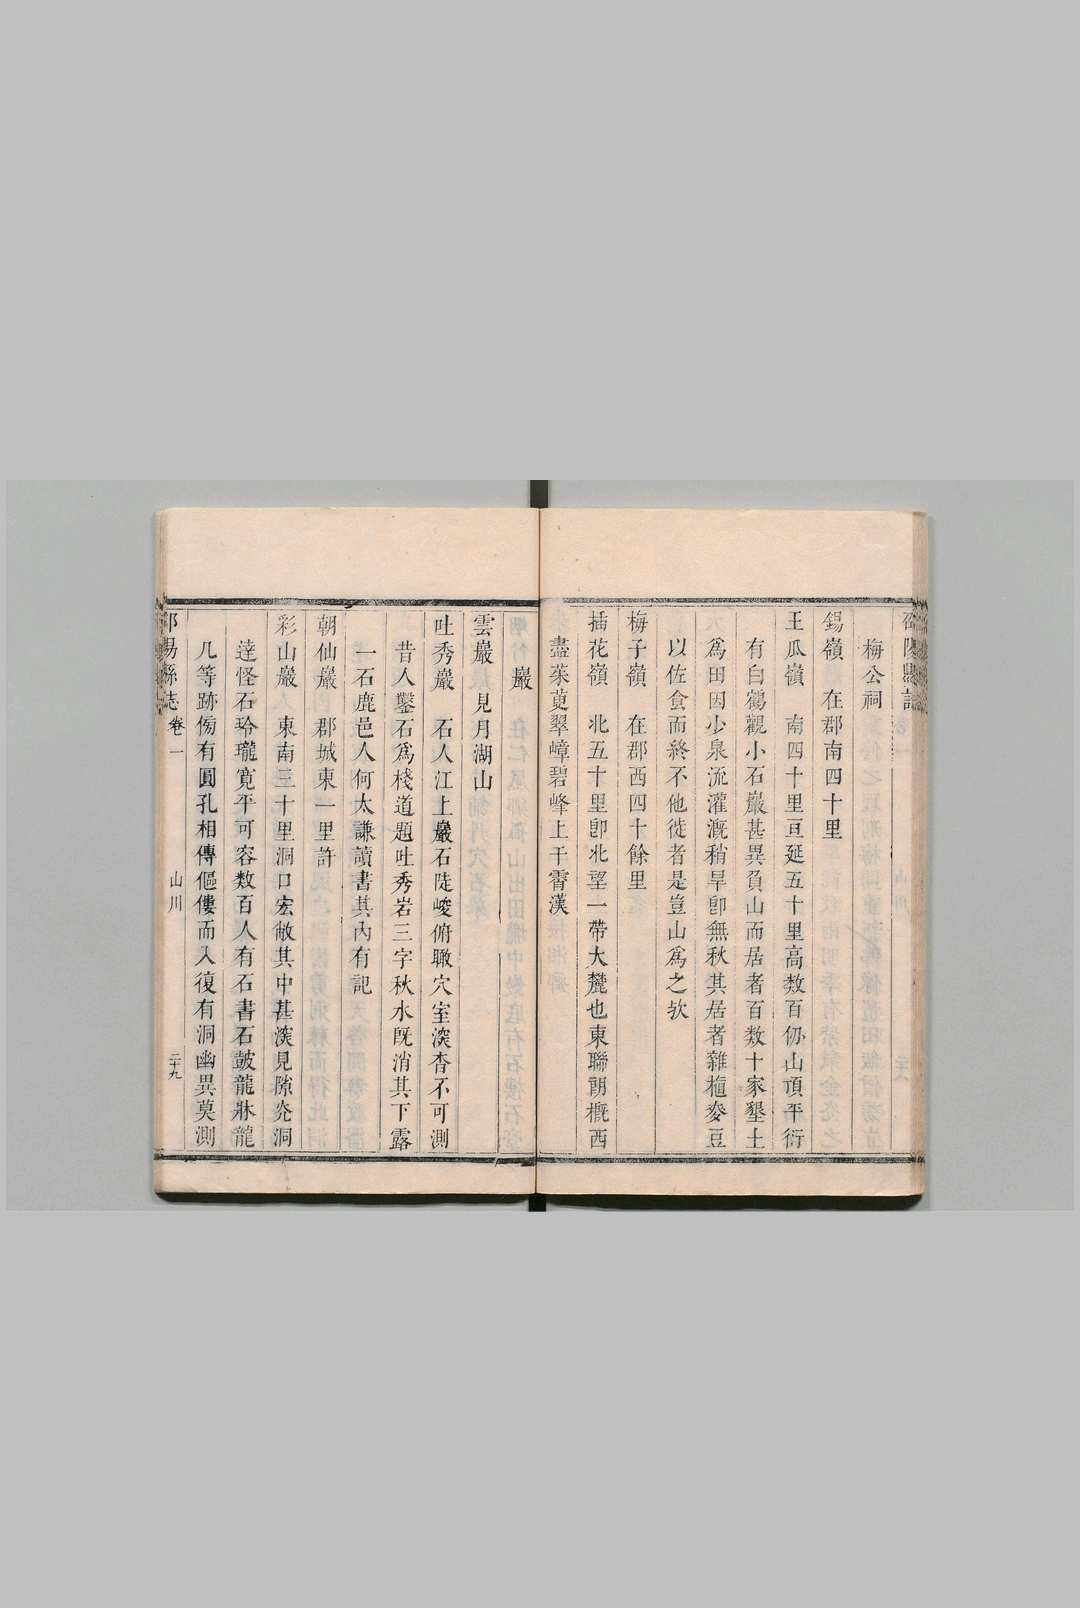 梅公祠
錫嶺　在郡南四十里
王瓜嶺　南四十里亘延五十里高数百仞山頂平衍
有白鶴觀小石巖甚異負山而居者百数十家墾土
爲田因少泉流灌漑稍旱卽無秋其居者雜植麥豆
以佐食而終不他徙者是豈山爲之欤
梅子嶺　在郡西四十餘里
插花嶺　北五十里卽北望一帶大麓也東聯朗概西
盡茱萸翠嶂碧峰上干霄漢
巖
雲巖　見月湖山
吐秀巖　石人江上巖石陡峻俯瞰穴室深杳不可測
昔人鑿石爲棧道題吐秀岩三字秋水旣消其下露
一石鹿邑人何太謙讀書其內有記
朝仙巖　郡城東一里許
彩山巖　東南三十里洞口宏敞其中甚深見隙兖洞
達怪石玲瓏寛平可容数百人有石書石皷龍牀龍
几等跡傍有圓孔相傳傴僂而入復有洞幽異莫測
卷一
山川
二十九